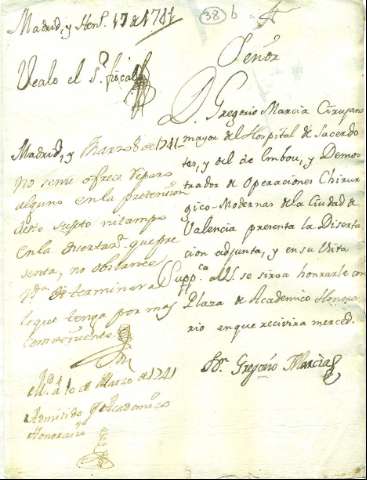 38 b
Madrid, y Hen.º 17 de 1741
Vealo el S.r fiscal
Señor
D. Gregorio Marcia Cirujano
mayor del Hospital de Sacerdo-
tes, y del de Embou, y Demos-
trador de Operaciones Chirur-
gico-Modernas de la Ciudad de
Valencia presenta la Diserta-
cion adjunta, y en su vista
Supp.ca a VS. se sirva honrarle con
Plaza de Academico Honora-
rio en que recivira merced.
Dn. Gregorio Marcia
Madrid, y Marzo 8 de 1741
no seme ofrece reparo
alguno en la pretension
deste supto ni tampo
en la disertas.on que pre
senta, no obstante
determinara
lo que tenga por mas
combeniente
M.d a 10 de Marzo de 1741
Admitido p.r Academico
Honorario